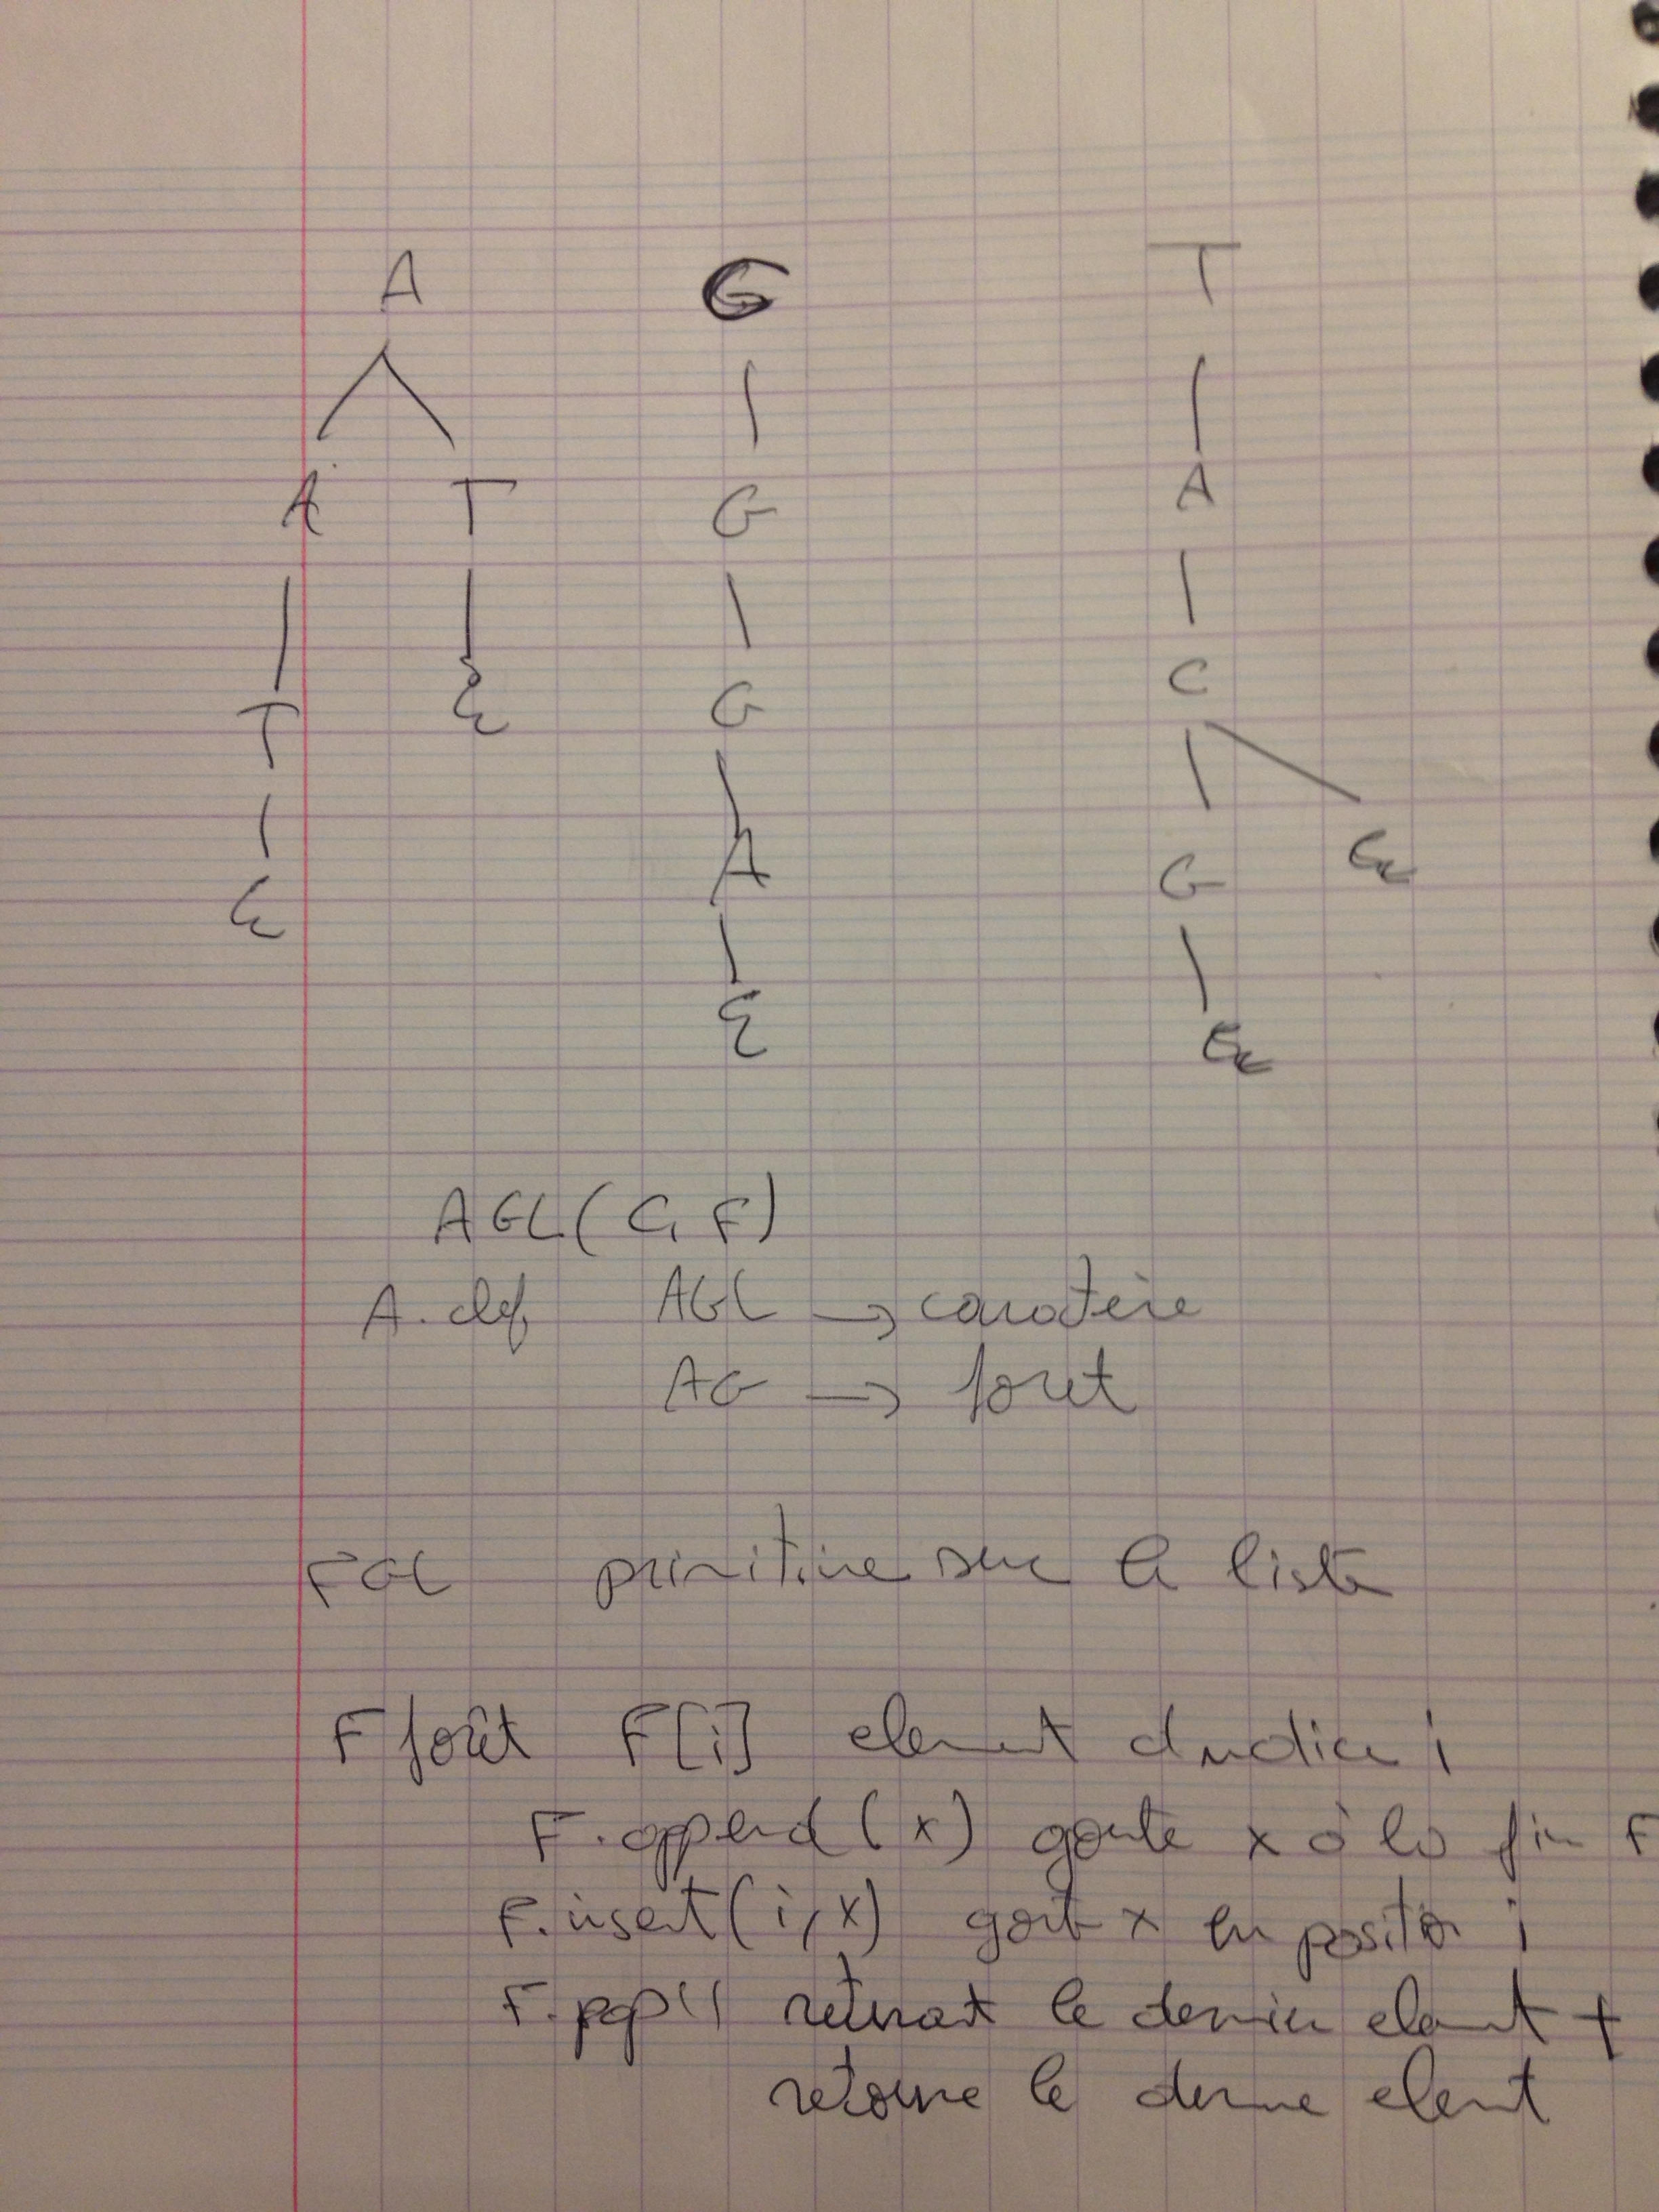 A G T
A T G A
T ε G C
ε A G ε
ε ε
AGL(C, F)
A. clef AGL → caractère
AG → foret
FGL primitive sur la liste
F forêt F[i] element d'indice i
F.append(x) ajoute x à la fin F
F.insert(i,x) ajoute x en position i
F.pop() retirait le dernier element +
retourne le dernier element